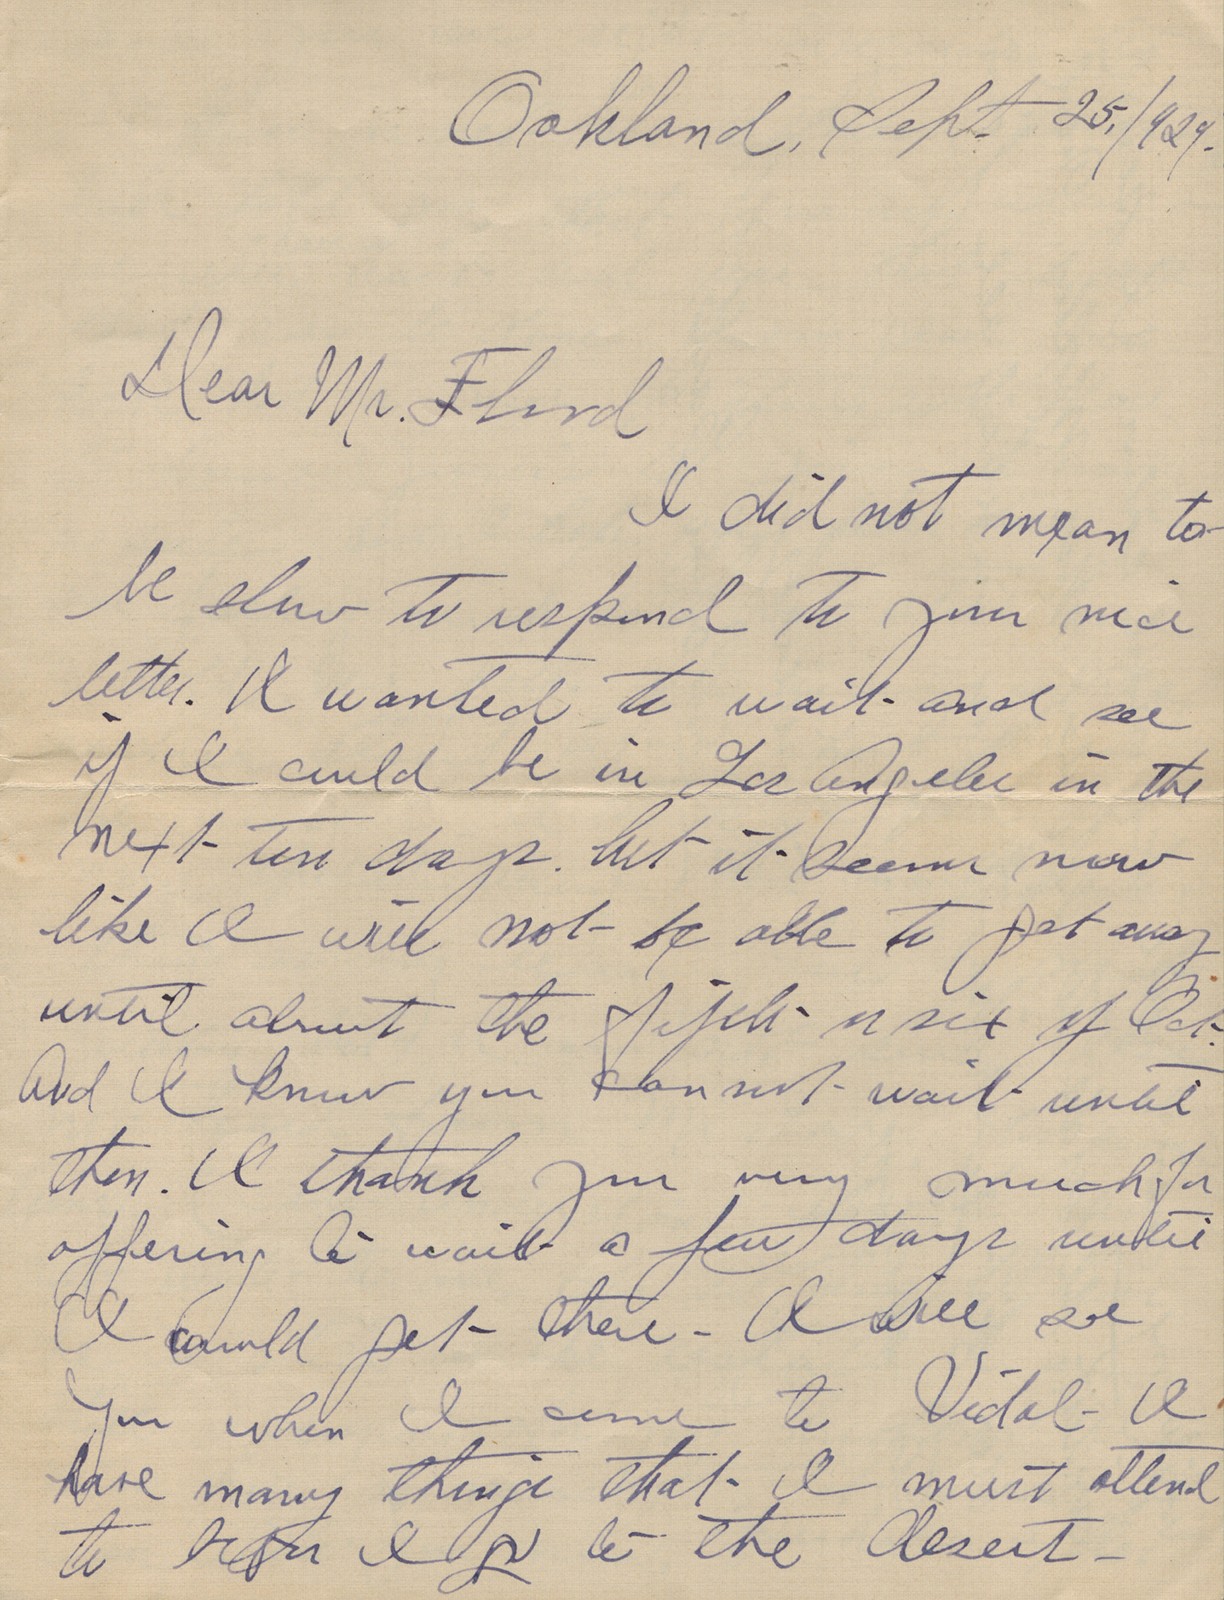 Oakland, Sept. 25, 1929.
Dear Mr. Flood
I did not mean to
be slow to respond to your nice
letter. I wanted to wait and see
if I could be in Los Angeles in the
next ten days. but it seems now
like I will not be able to get away
until about the fifth or six of Oct.
And I know you can not wait until
then. I thank you very much for
offering to wait a few days until
I could get there - I will see
you when I come to Vidal - I
have many things that I must attend
to befor I go to the desert -